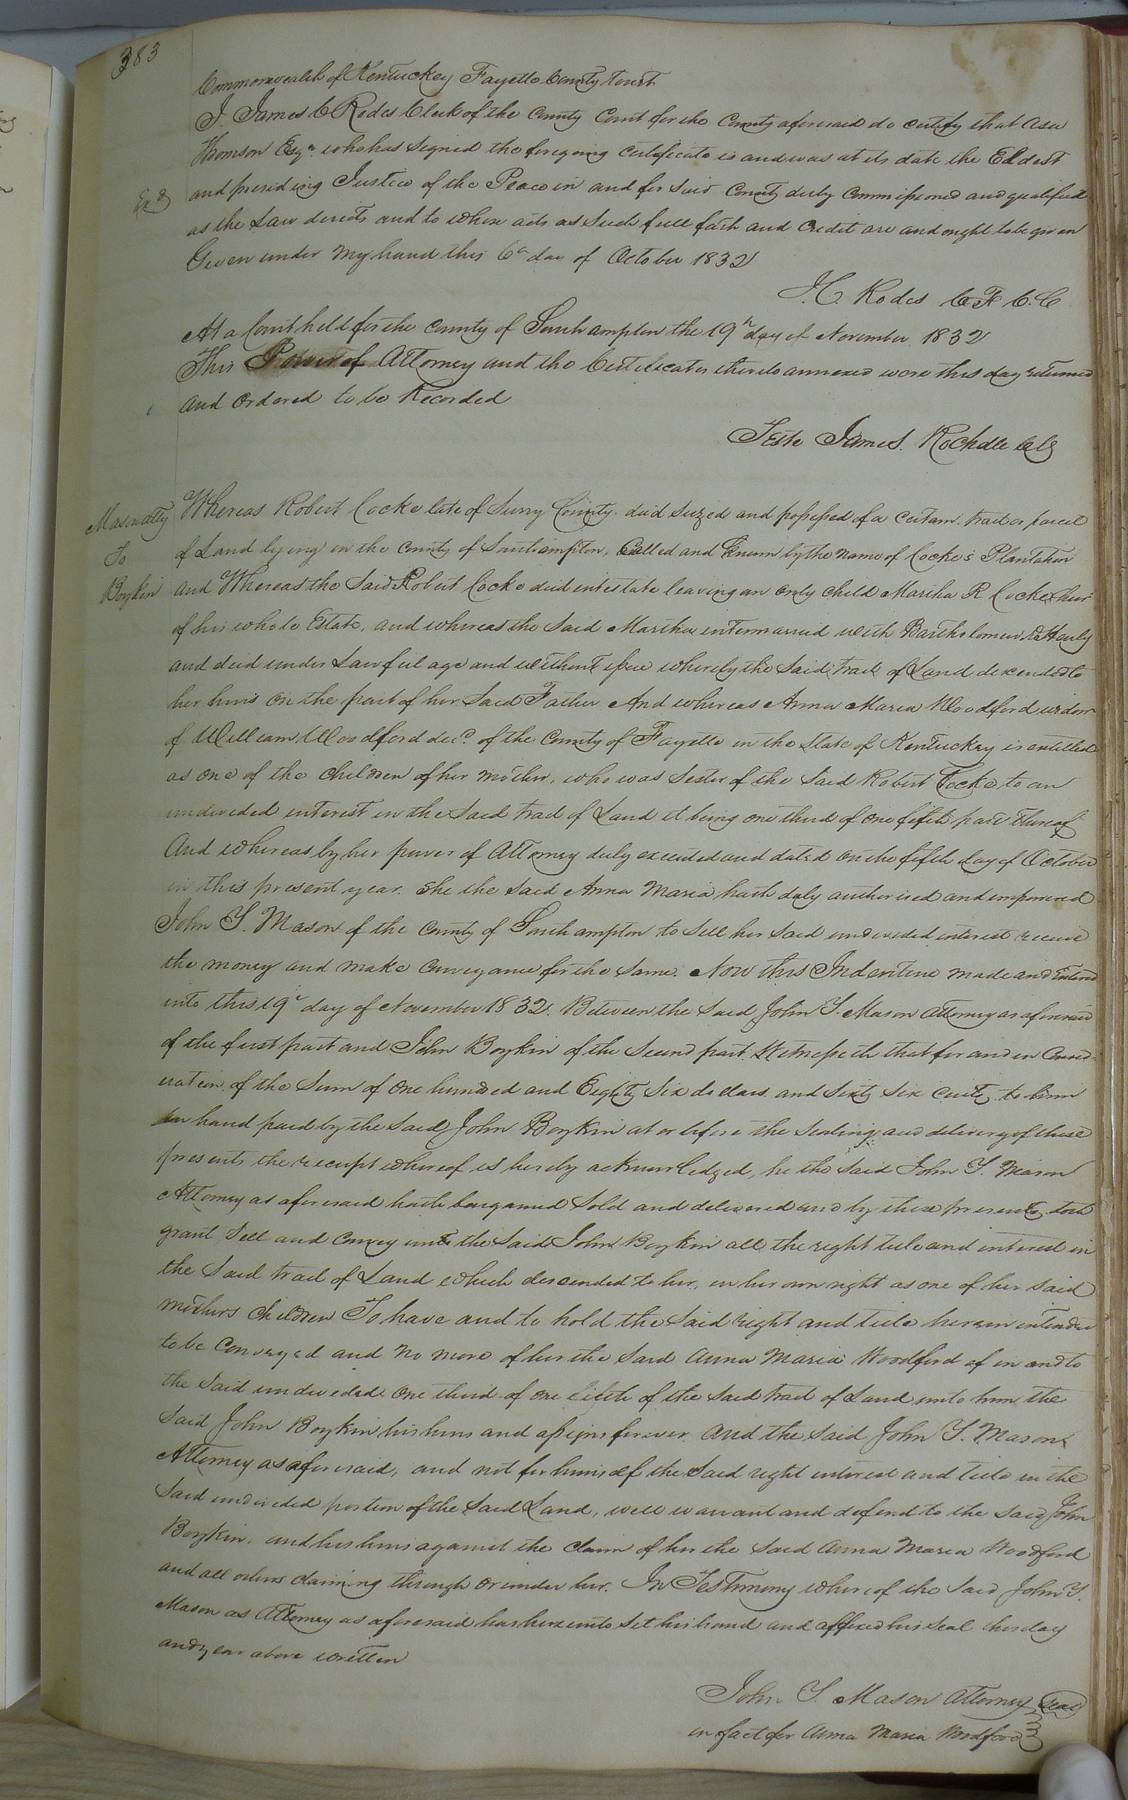 383
Commonwealth of Kentucky Fayette County Court
I James C Rodes Clerk of the County Court for the County aforesaid do certify that Asa
Thomson Esqr who has signed the foregoing certificate is and was at its date the Eldest
and presiding Justice of the Peace in and for said County duly commissioned and qualified
as the Law directs and to whose acts as such full faith and credit are and ought to be given
Given under my hand this 6th day of October 1832
J. C. Rodes C F C. C
At a Court held for the County of Southampton the 19th day of November 1832
This Power of Attorney and the Certificates thereto annexed were this day returned
and ordered to be Recorded
Teste James. Rochelle Clk
Mason atty
To
Boykin
Whereas Robert Cocke late of Surry County. died seized and possessed of a certain tract or parcel
of Land lying in the county of Southampton, Called and known by the name of Cocke's Plantation
and Whereas the said Robert Cocke died intestate leaving an only child Martha R Cocke heir
of his whole Estate, and whereas the said Martha intermarried with Bartholomew D Hauly
and died under Lawful age and without issue whereby the said tract of Land descended to
her heirs on the part of her said Father And whereas Anna Maria Woodford widow
of William Woodford decd. of the County of Fayette in the State of Kentuckey is entitled
as one of the children of her mother, who was sister of the said Robert Cocke to an
undivided interest in the said tract of Land it being one third of one fifth part thereof
And whereas by her power of Attorney duly executed and dated on the fifth day of October
in this present year. she the said Anna Maria hath duly authorised and empowered
John Y. Mason of the County of Southampton to sell her said undivided interest receive
the money and make conveyance for the same. Now this Indenture made and Entered
into this 19th day of November 1832. Between the said John Y. Mason attorney as aforesaid
of the first part and John Boykin of the second part. Witnesseth that for and in Consid-
eration of the Sum of one hundred and Eighty Six dollars and Sixty Six cents, to him
in hand paid by the said John Boykin at or before the sealing and delivery of these
presents the receipt whereof is hereby acknowledged, he the said John Y. Mason
Attorney as aforesaid hath bargained sold and delivered and by these presents doth
grant sell and convey unto the said John Boykin all the right title and interest in
the said tract of Land which descended to her, in her own right as one of her said
mothers children To have and to hold the said right and title herein intended
to be conveyed and no more of her the said Anna Maria Woodford of in and to
the said undivided one third of one fifth of the said tract of Land unto him the
said John Boykin his heirs and assigns forever. And the said John Y. Mason
Attorney as aforesaid, and not for himself the said right interest and title in the
said undivided portion of the said Land, will warrant and defend to the said John
Boykin, and his heirs against the claim of her the said Anna Maria Woodford
and all others claiming through or under her. In Testimony whereof the said John Y.
Mason as Attorney as aforesaid has hereunto set his hand and affixed his seal the day
and year above written
John Y. Mason Attorney seal
in fact for Anna Maria Woodford